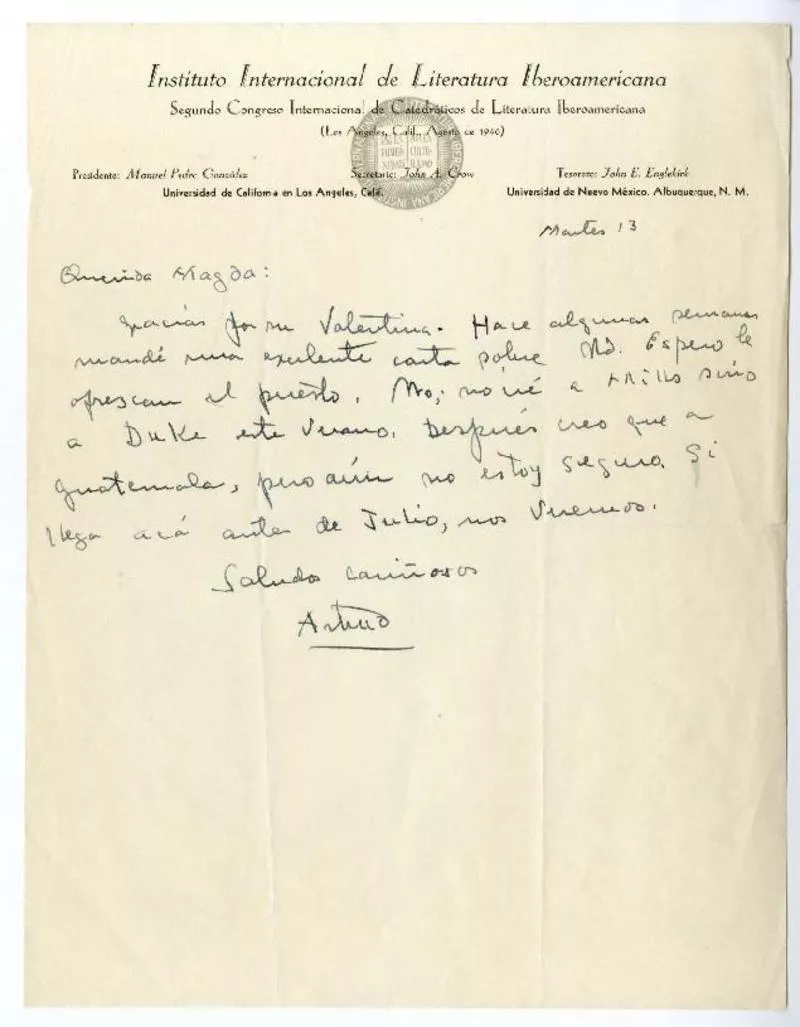 Instituto Internacional de Literatura Iberoamericana
Segundo Congreso Internacional de Catedráticos de Literatura Iberoamericana
(Los Angeles, Calif., Agosto de 1940)
Presidente: Manuel Pedro González Secretario: John A. Crow Tesorero: John E. Englekirk
Universidad de California en Los Angeles, Calif. Universidad de Nuevo México. Albuquerque, N. M.
Martes 13
Querida Magda:
Gracias por su Valentina. Hace algunas semanas
mandé una excelente carta sobre Ud. Espero le
ofrescan el puesto. No; no iré a Mills sino
a Duke este verano. Después creo que a
Guatemala, pero aún no estoy seguro. Si
llega acá antes de Julio, nos veremos.
Saludos cariñosos
Arturo